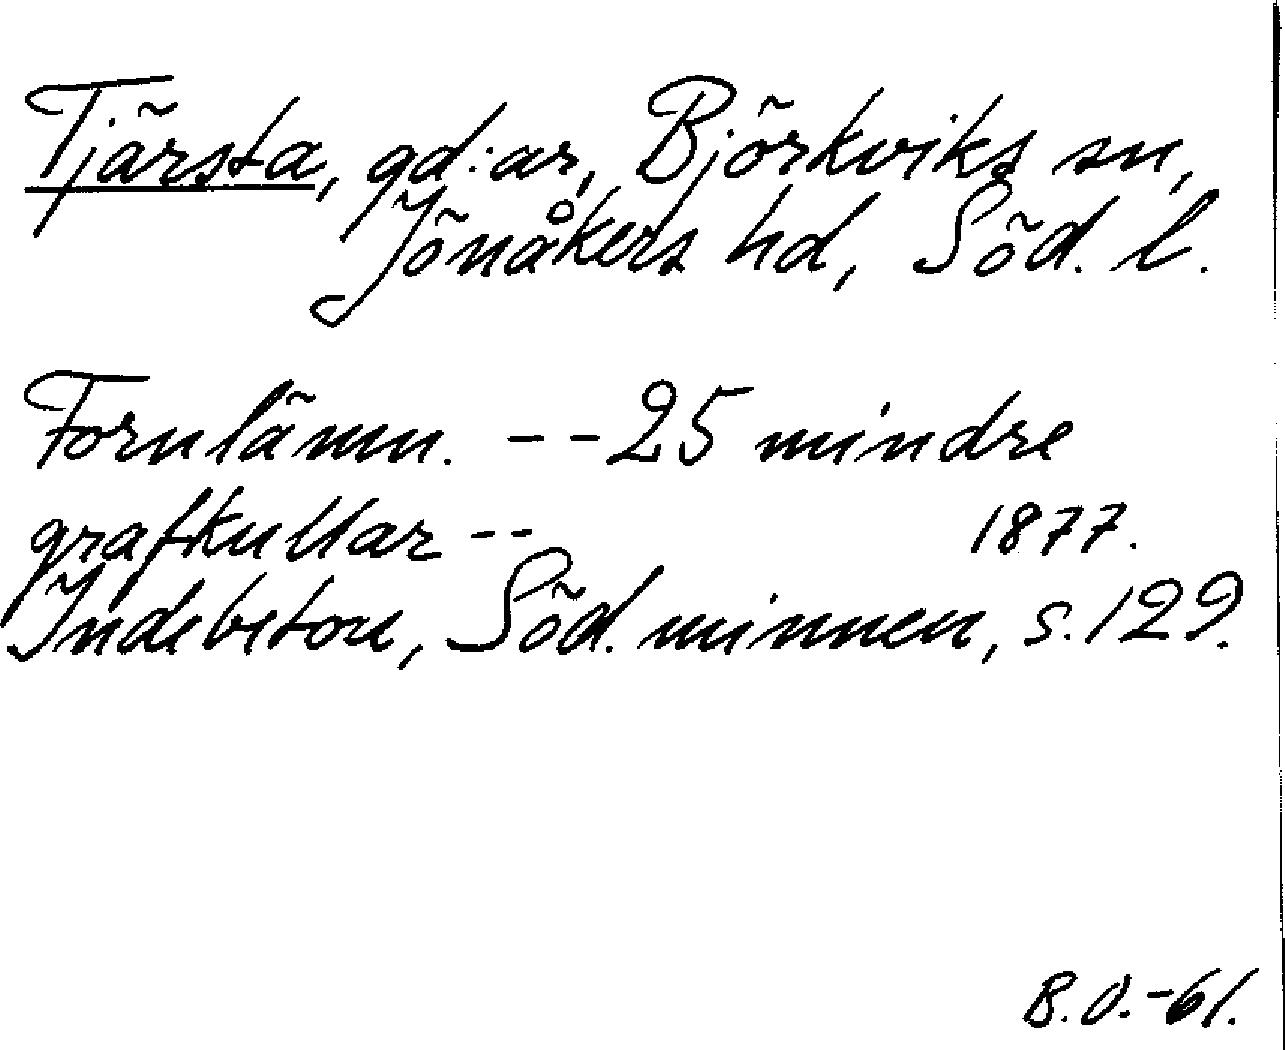 Tjärsta, gd:ar, Björkviks sn,
Jönåkers hd, Söd. l.
Fornlämn. -- 25 mindre
grafkullar -- 1877.
Indebetou, Söd. minnen, s. 129.
B.O.-61.